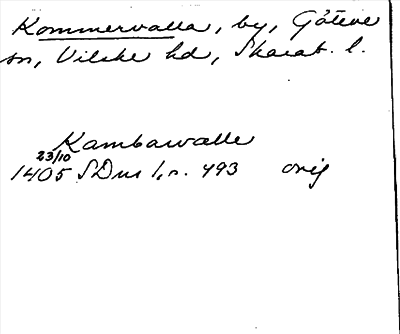 Kommervalla, by, Göteve
sn, Vilske hd, Skarab. l.
Kambawalle
23/10
1405 SDns 1, n. 493 orig